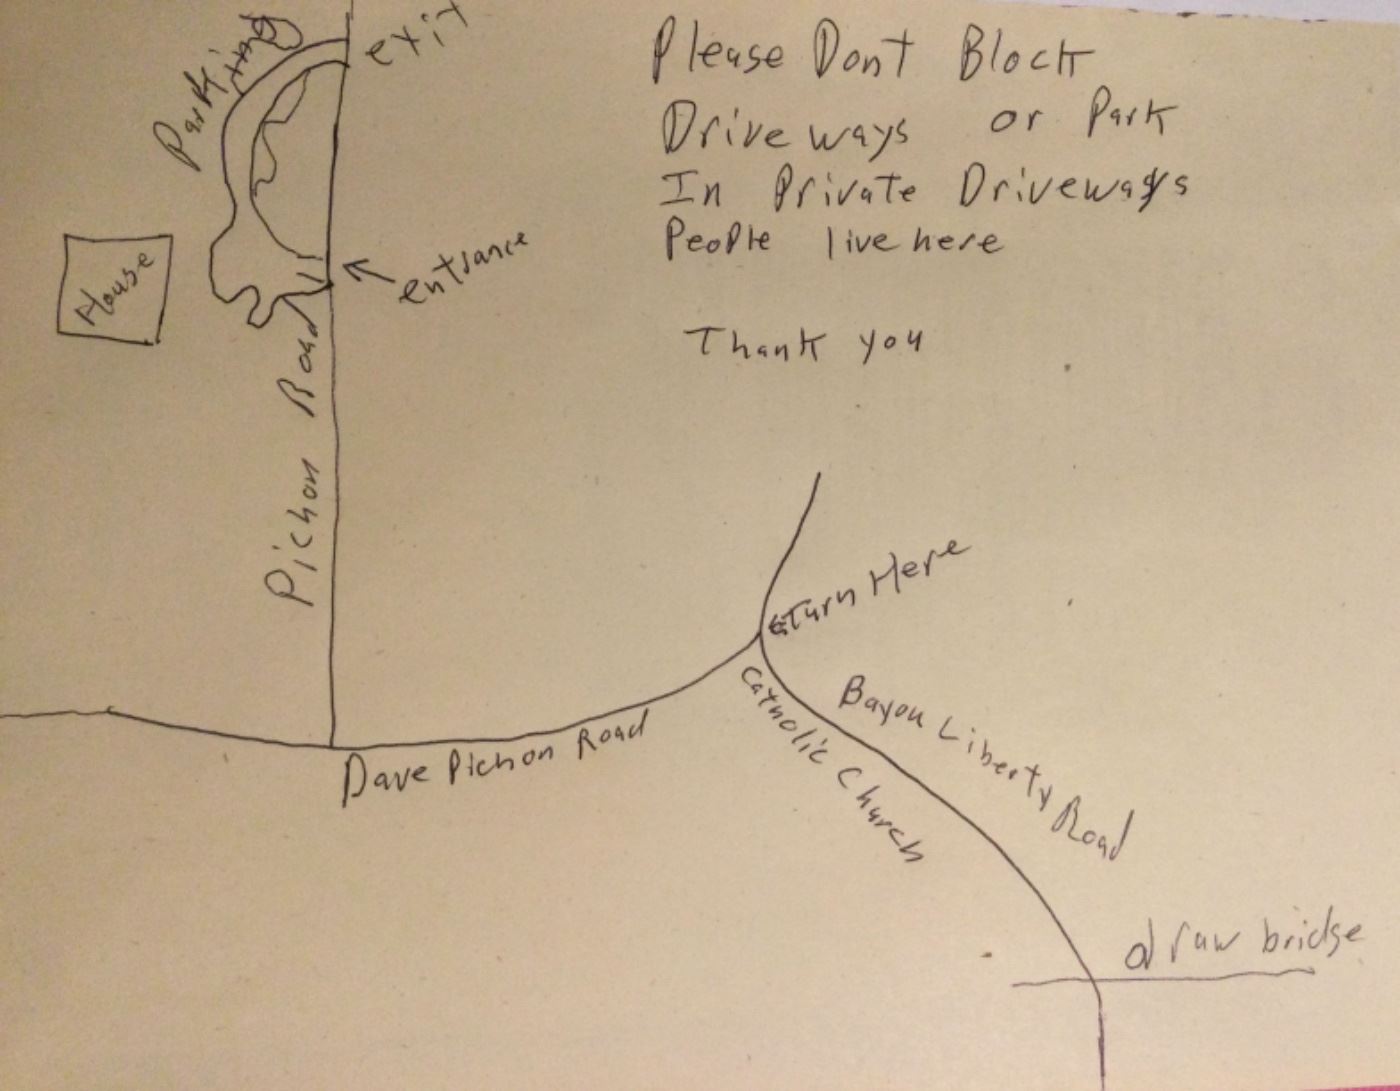 exit
Parking
Please Dont Block
Driveways or Park
In Private Driveways
People live here
Thank you
House
entrance
Pichon Road
Turn Here
Catholic Church
Bayou Liberty Road
Dave Pichon Road
draw bridge